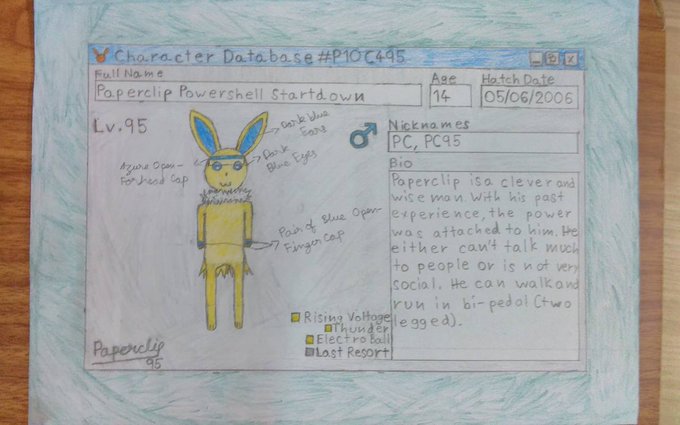 Character Database #P1OC495
Full Name
Paperclip Powershell Startdown
Age
14
Hatch Date
05/06/2006
Lv.95
Dark blue
Ears
Dark
Blue Eyes
Azure Open-
Forhead Cap
Pair of Blue Open-
Finger Cap
Nicknames
PC, PC95
Bio
Paperclip is a clever and
wise man. With his past
experience, the power
was attached to him. He
either can't talk much
to people or is not very
social. He can walk and
run in bi-pedal (two
legged).
Rising Voltage
Thunder
Electro Ball
Last Resort
Paperclip
95